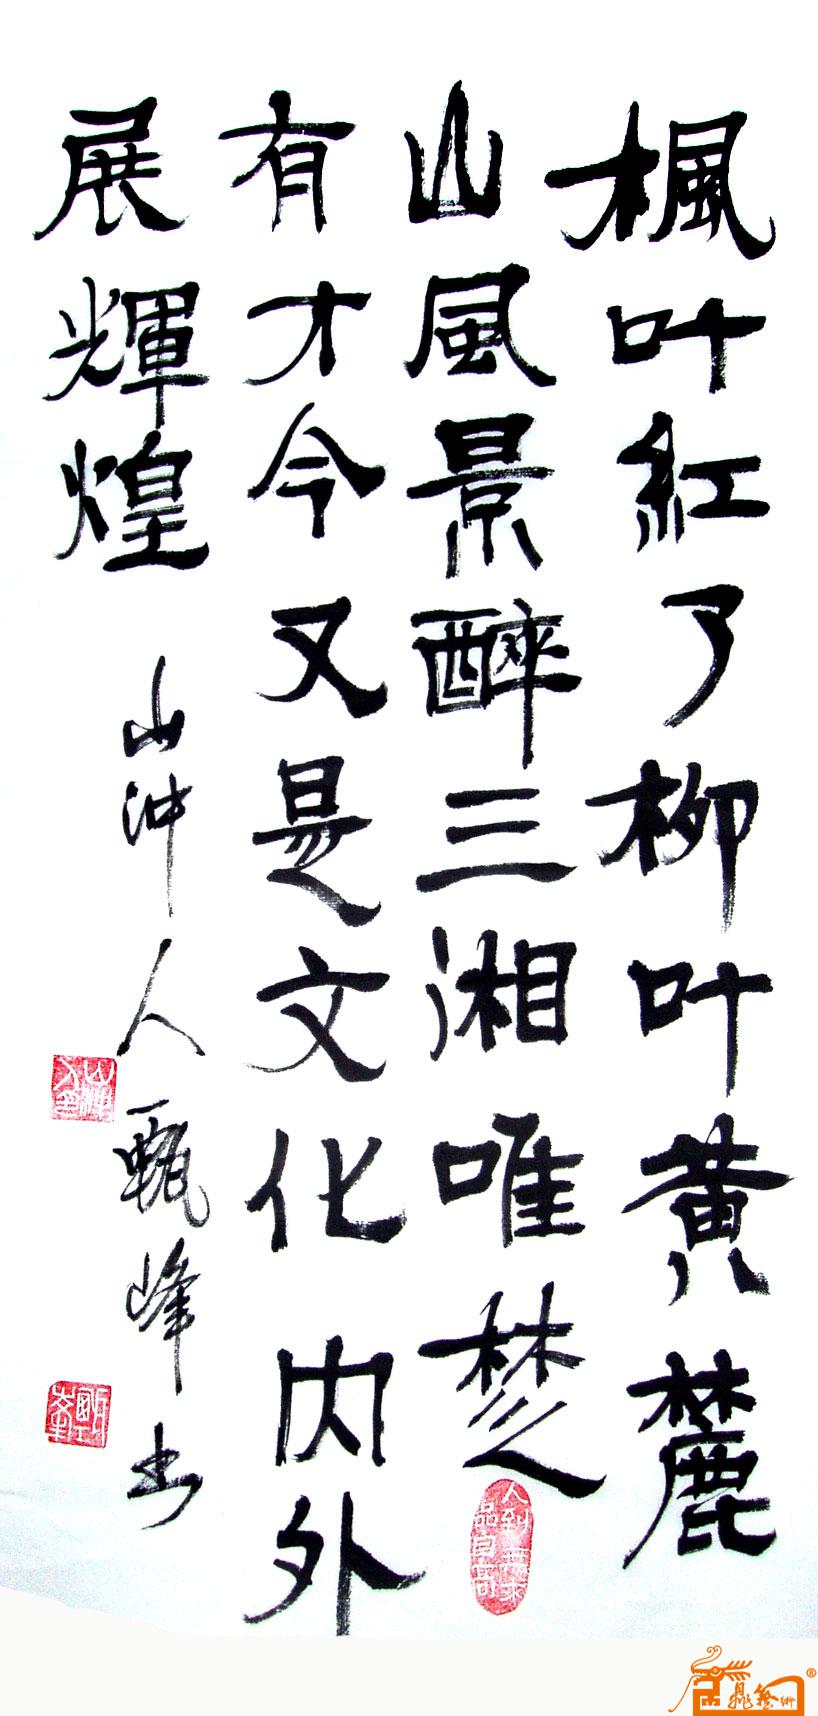 楓叶紅了柳叶黄麓
山風景醉三湘唯楚
有才今又是文化内外
展輝煌
山冲人甄峰书